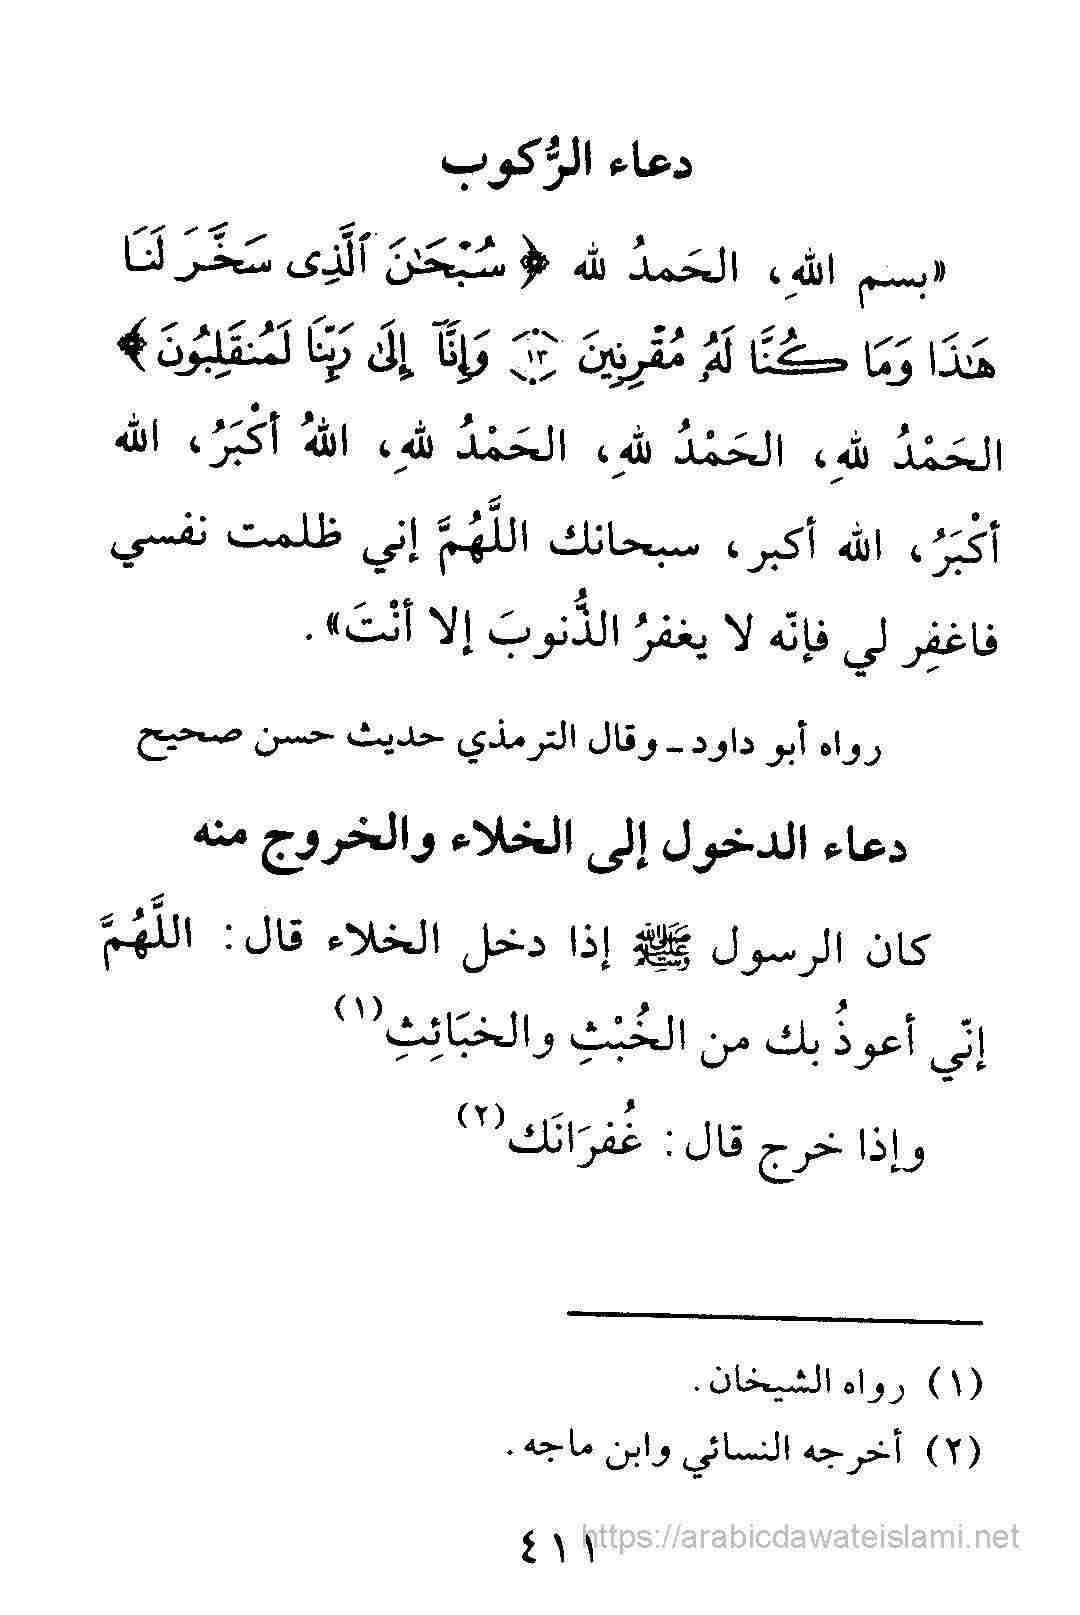 دعاء الرُّكوب
«بسم اللهِ، الحَمدُ لله ﴿ سُبْحَٰنَ ٱلَّذِى سَخَّرَ لَنَا
هَٰذَا وَمَا كُنَّا لَهُۥ مُقْرِنِينَ ١٣ وَإِنَّآ إِلَىٰ رَبِّنَا لَمُنقَلِبُونَ ﴾
الحَمْدُ للهِ، الحَمْدُ للهِ، الحَمْدُ للهِ، اللهُ أكْبَرُ، الله
أكْبَرُ، الله أكبر، سبحانك اللَّهُمَّ إني ظلمت نفسي
فاغفِر لي فإنّه لا يغفرُ الذُّنوبَ إلا أنْتَ».
رواه أبو داود ـ وقال الترمذي حديث حسن صحيح
دعاء الدخول إلى الخلاء والخروج منه
كان الرسول ﷺ إذا دخل الخلاء قال: اللَّهُمَّ
إنّي أعوذُ بك من الخُبْثِ والخبَائِثِ(١)
وإذا خرج قال: غُفرَانَك(٢)
(١) رواه الشيخان.
(٢) أخرجه النسائي وابن ماجه.
٤١١
https://arabicdawateislami.net